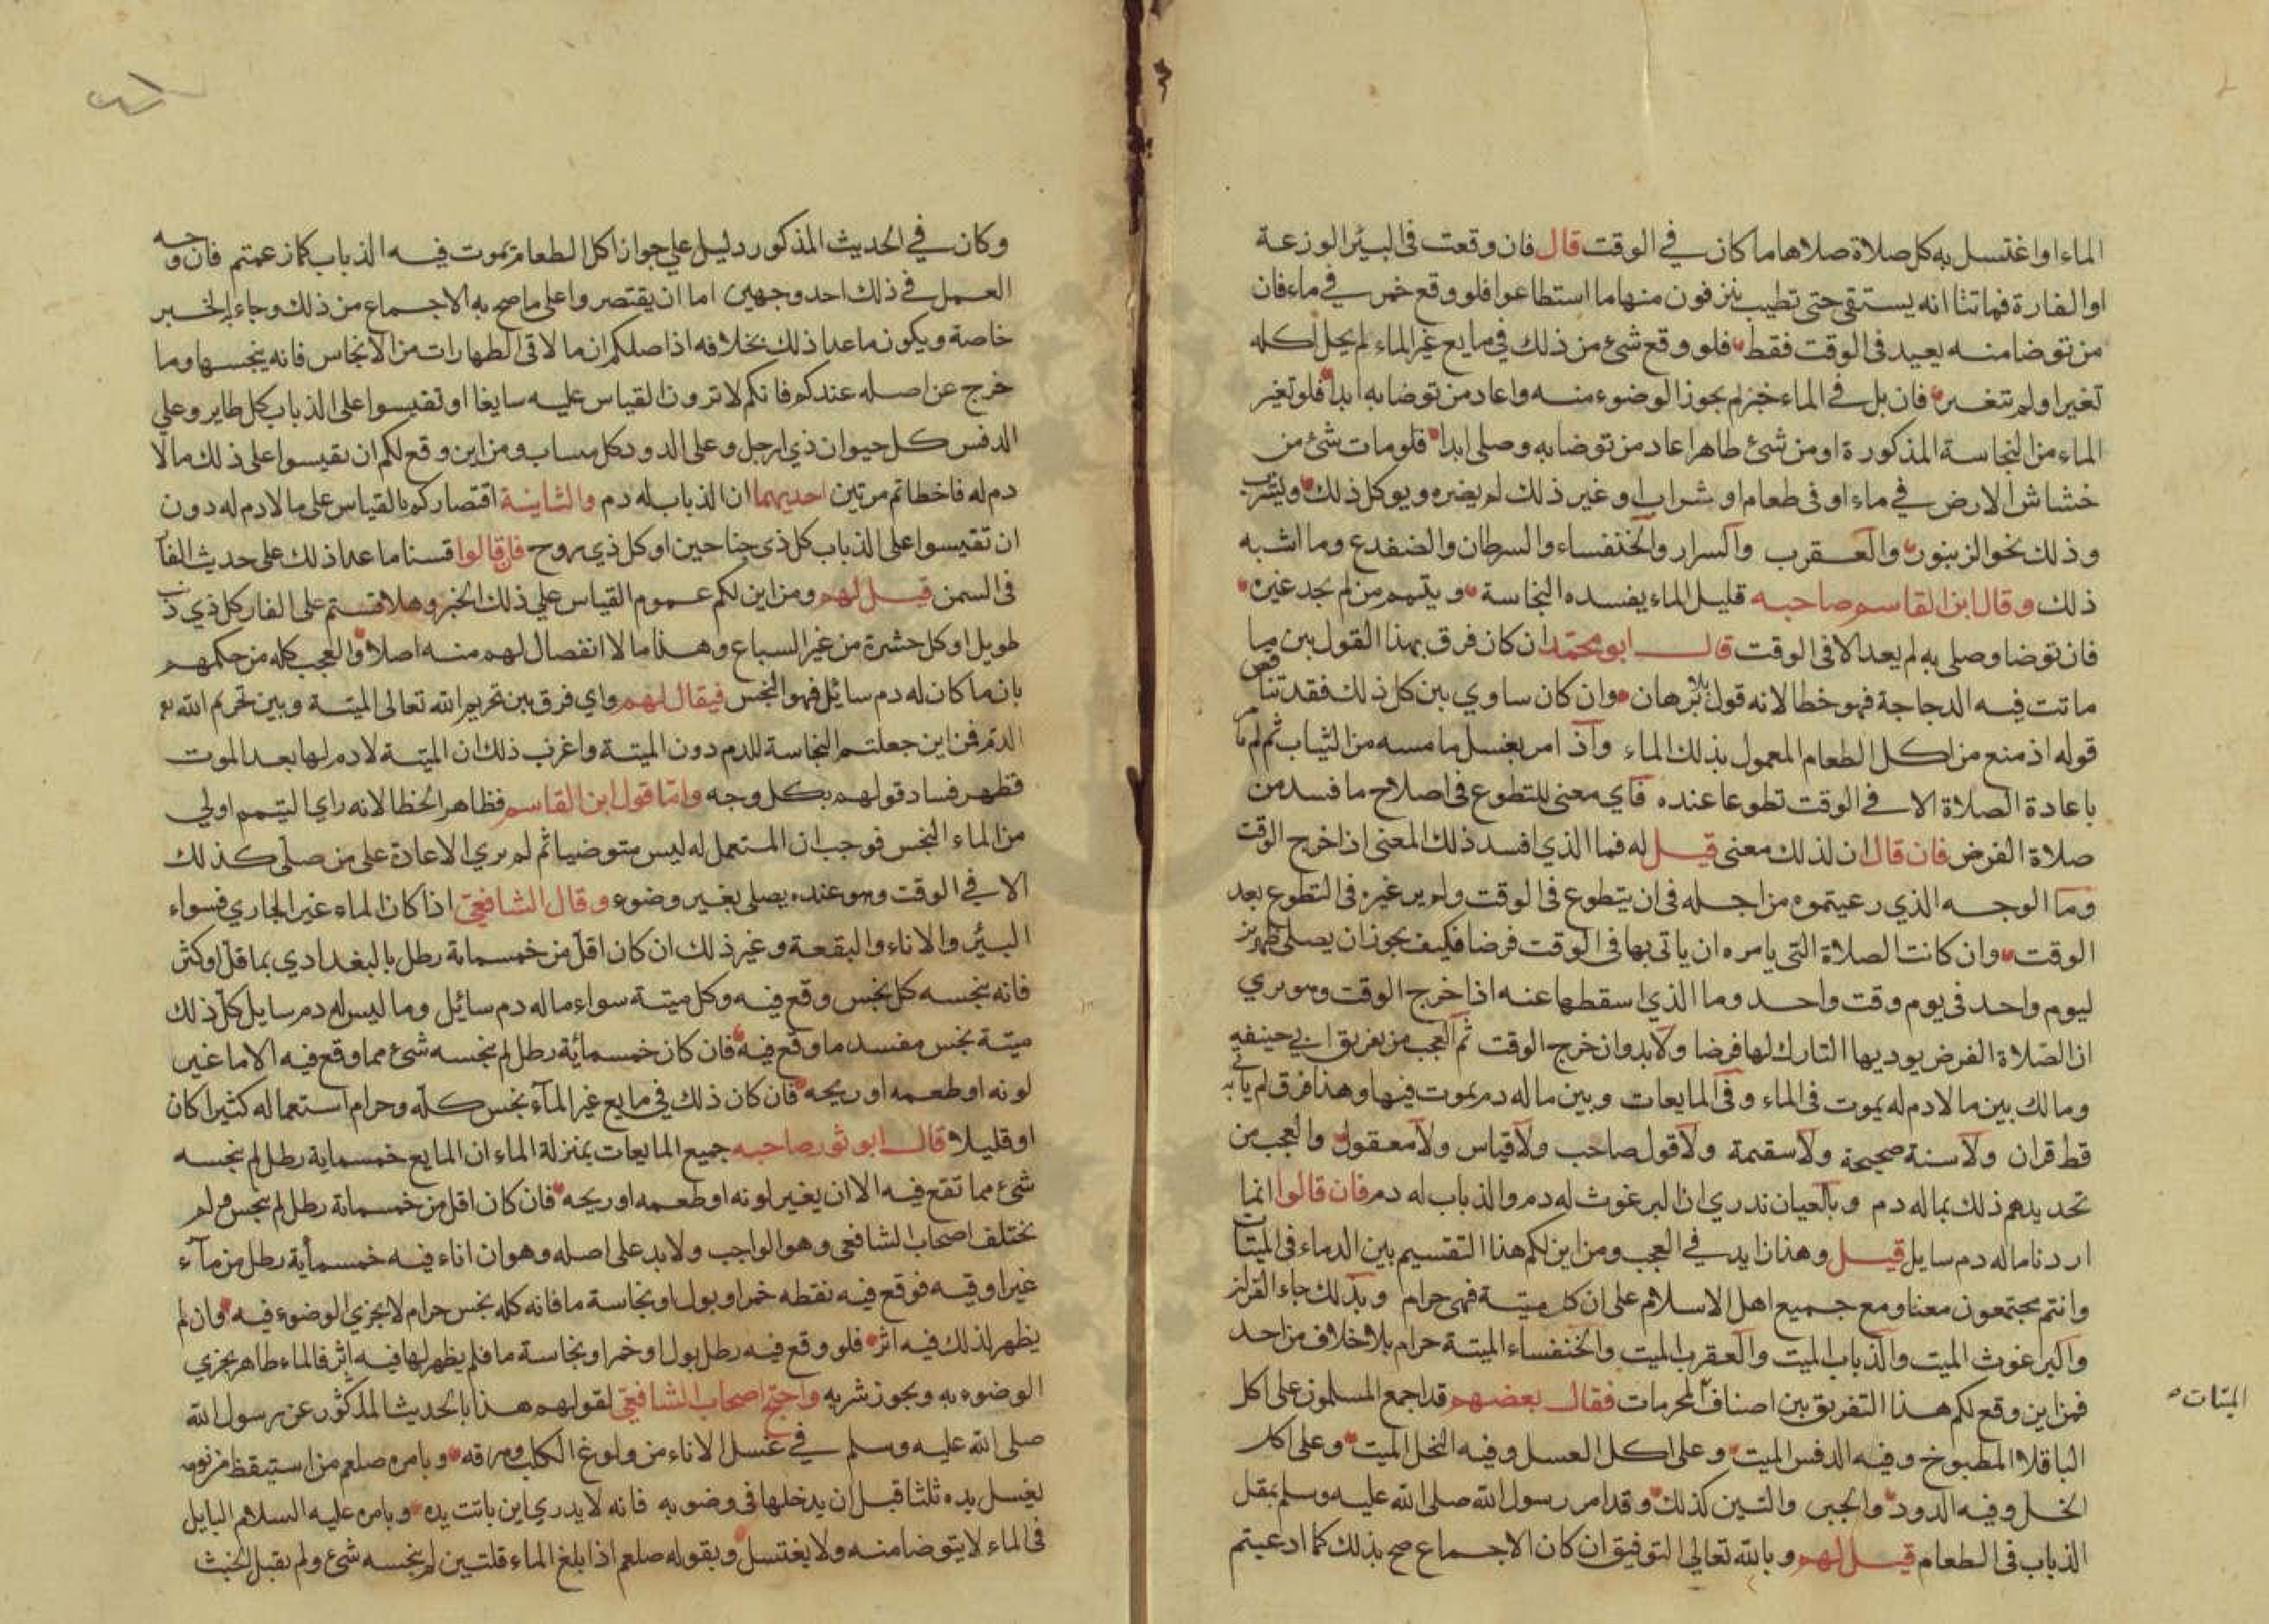 الماء او اغتسل به كل صلاة صلاها ما كان في الوقت قال فان وقعت في البئر الوزعة
او الفارة فماتتا انه يستقى حتى تطيب ينزفون منها ما استطاعوا فلو وقع خمر في ماء فان
من توضا منه يعيد في الوقت فقط فلو وقع شئ من ذلك في مايع غير الماء لم يحل اكله
تغير او لم تتغير فان بل في الماء خبز لم يجوز الوضوء منه واعاد من توضا به ابدا فلو تغير
الماء من النجاسة المذكورة او من شئ طاهر اعاد من توضا به وصلى ابدا فلو مات شئ من
خشاش الارض في ماء او في طعام او شراب او غير ذلك لم يضره ويوكل ذلك ويشرب
وذلك نحو الزنبور والعقرب والسرار والخنفساء والسرطان والضفدع وما اشبه
ذلك وقال ابن القاسم صاحبه قليل الماء يفسده النجاسة ويتيمم من لم يجد غيره
فان توضا وصلى به لم يعد الا في الوقت قال ابو محمد ان كان فرق بهذا القول بين ما
ماتت فيه الدجاجة فهو خطا لانه قول بلا برهان وان كان ساوي بين كل ذلك فقد تناقض
قوله اذ منع من اكل الطعام المعمول بذلك الماء واذ امر بغسل ما مسه من الثياب ثم لم يامر
باعادة الصلاة الا في الوقت تطوعا عنده فاي معنى للتطوع في اصلاح ما فسد من
صلاة الفرض فان قال ان لذلك معنى قيل له فما الذي افسد ذلك المعنى اذا خرج الوقت
وما الوجه الذي رعيتموه من اجله في ان يتطوع في الوقت ولم ير غيره في التطوع بعد
الوقت وان كانت الصلاة التي يامره ان ياتي بها في الوقت فرضا فكيف يجوز ان يصلى ظهرين
ليوم واحد في يوم وقت واحد وما الذي اسقطها عنه اذا خرج الوقت وهو يري
ان الصلاة الفرض يوديها التارك لها فرضا ولا بد وان خرج الوقت ثم العجب من تفريق ابي حنيفه
ومالك بين ما لا دم له يموت في الماء وفي المايعات وبين ما له دم يموت فيها وهذا فرق لم يات به
قط قران ولا سنة صحيحة ولا سقيمة ولا قول صاحب ولا قياس ولا معقول والعجب من
تحديدهم ذلك بما له دم وبالعيان ندري ان البرغوث له دم والذباب له دم فان قالوا انما
اردنا ما له دم سايل قيل وهذا زايد في العجب ومن اين لكم هذا التقسيم بين الدماء في الميتات
وانتم مجتمعون معنا ومع جميع اهل الاسلام على ان كل ميتة فهي حرام وبذلك جاء القران
والبراغوث الميت والذباب الميت والعقرب الميت والخنفساء الميتة حرام بلا خلاف من احد
فمن اين وقع لكم هذا التفريق بين اصناف المحرمات فقال بعضهم قد اجمع المسلمون على اكل
الميتات
الباقلا المطبوخ وفيه الدفس الميت وعلى اكل العسل وفيه النحل الميت وعلى اكل
الخل وفيه الدود والجبن والتين كذلك وقد امر رسول الله صلى الله عليه وسلم بمقل
الذباب في الطعام قيل لهم وبالله تعالى التوفيق ان كان الاجماع صح بذلك كما ادعيتم
وكان في الحديث المذكور دليل على جواز اكل الطعام يموت فيه الذباب كما زعمتم فان وجه
العمل في ذلك احد وجهين اما ان يقتصروا على ما صح به الاجماع من ذلك وجاء به الخبر
خاصة ويكون ما عدا ذلك بخلافه اذ اصلكم ان ما لاقى الطهارات من الانجاس فانه ينجسها وما
خرج عن اصله عندكم فانكم لا ترون القياس عليه سايغا او تقيسوا على الذباب كل طاير وعلى
الدفس كل حيوان ذي ارجل وعلى الدود كل منساب ومن اين وقع لكم ان تقيسوا على ذلك ما لا
دم له فاخطاتم مرتين احديهما ان الذباب له دم والثانية اقتصاركم بالقياس على ما لا دم له دون
ان تقيسوا على الذباب كل ذي جناحين او كل ذي روح فان قالوا قسنا ما عدا ذلك على حديث الفار
في السمن قيل لهم ومن اين لكم عموم القياس على ذلك الخبر وهلا قستم على الفار كل ذي ذنب
طويل او كل حشرة من غير السباع وهذا ما لا انفصال لهم منه اصلا والعجب كله من حكمهم
بان ما كان له دم سائل فهو النجس فيقال لهم واي فرق بين تحريم الله تعالى الميتة وبين تحريم الله تع
الدم فمن اين جعلتم النجاسة للدم دون الميتة واغرب ذلك ان الميتة لا دم لها بعد الموت
فظهر فساد قولهم بكل وجه واما قول ابن القاسم فظاهر الخطا لانه راي التيمم اولي
من الماء النجس فوجب ان المستعمل له ليس متوضيا ثم لم يري الاعادة على من صلى كذلك
الا في الوقت وهو عنده يصلي بغير وضوء وقال الشافعي اذا كان الماء غير الجاري فسواء
البئر والاناء والبقعة وغير ذلك ان كان اقل من خمسماية رطل بالبغدادي بما قل او كثر
فانه ينجسه كل نجس وقع فيه وكل ميتة سواء ما له دم سائل وما ليس له دم سايل كل ذلك
ميتة نجس مفسد ما وقع فيه فان كان خمسمائة رطل لم ينجسه شئ مما وقع فيه الا ما غير
لونه او طعمه او ريحه فان كان ذلك في مايع غير الماء نجس كله وحرام استعماله كثيرا كان
او قليلا قال ابو ثور صاحبه جميع المايعات بمنزلة الماء ان المايع خمسماية رطل لم ينجسه
شئ مما تقع فيه الا ان يغير لونه او طعمه او ريحه فان كان اقل من خمسماية رطل لم ينجس ولم
يختلف اصحاب الشافعي وهو الواجب ولا بد على اصله وهو ان اناء فيه خمسمأية رطل من ماء
غير اوقيه فوقع فيه نقطه خمر او بول او نجاسة ما فانه كله نجس حرام لا يجزي الوضوء فيه وان لم
يظهر لذلك فيه اثر فلو وقع فيه رطل بول او خمر او نجاسة ما فلم يظهر لها فيه اثر فالماء طاهر يجزي
الوضوء به ويجوز شربه واحتج اصحاب الشافعي لقولهم هذا بالحديث المذكور عن رسول الله
صلى الله عليه وسلم في غسل الاناء من ولوغ الكلب وهرقه وبامره صلعم من استيقظ من نومه
بغسل يده ثلثا قبل ان يدخلها في وضوبه فانه لا يدري اين باتت يده وبامره عليه السلام البايل
في الماء لا يتوضا منه ولا يغتسل وبقوله صلعم اذا بلغ الماء قلتين لم ينجسه شئ ولم يقبل الخبث